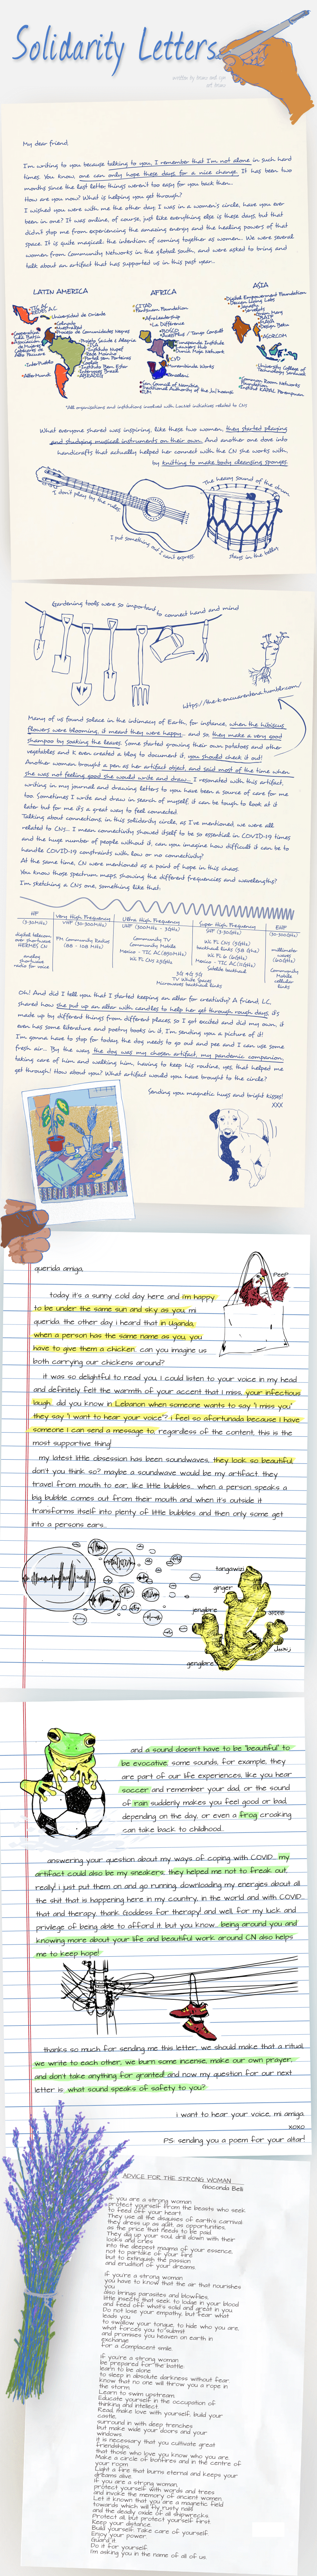 Solidarity Letters
written by Bruna and Cyn
My dear friend,
I'm writing to you because talking to you, I remember that I'm not alone in such hard
times. You know, one can only hope these days for a nice change. It has been two
months since the last letter things weren't too easy for you back then..
How are you now? What is helping you get through?
I wished you were with me the other day I was in a women's circle, have you ever
been in one? It was online, of course, just like everything else is these days, but that
didn't stop me from experiencing the amazing energy and the healing powers of that
space. It is quite magical.. the intention of coming together as women.. We were several
women from Community Networks in the global south, and were asked to bring and
talk about an artifact that has supported us in this past year..
LATIN AMERICA
AFRICA
ASIA
CITAD
Digital Empowerment Foundation
Universidad de Oriente
Colnodo
Tunapanda Institute
University College of
Technology Sarawak
Common Room Networks
*All organizations and institutions involved with LocNet initiatives related to CNs
What everyone shared was inspiring, like these two women, they started playing
and studying musical instruments on their own. And another one dove into
handicrafts that actually helped her connect with the CN she works with,
by knitting to make body cleansing sponges.
I don't play by the rules,
I put something out I can't express.
The heavy sound of the drum
stays in the belly
Gardening tools were so important to connect hand and mind
Many of us found solace in the intimacy of Earth, for instance, when the hibiscus
flowers were blooming, it meant they were happy.. and so, they make a very good
shampoo by soaking the leaves. Some started growing their own potatoes and other
vegetables and K even created a blog to document it, you should check it out!
Another woman brought a pen as her artifact object, and said most of the time when
she was not feeling good she would write and draw. I resonated with this artifact,
writing in my journal and drawing letters to you have been a source of care for me
too. Sometimes I write and draw in search of myself, it can be tough to look at it
later but for me it's a great way to feel connected.
Talking about connections, in this solidarity circle, as I've mentioned, we were all
related to CNs... I mean connectivity showed itself to be so essential in COVID-19 times
and the huge number of people without it, can you imagine how difficult it can be to
handle COVID-19 constraints with low or no connectivity?
At the same time, CN were mentioned as a point of hope in this chaos.
You know those spectrum maps, showing the different frequencies and wavelengths?
I'm sketching a CNs one, something like that:
HF
(3-30MHz)
digital telecom
over shortwave
HERMES CN
analog
shortwave
radio for voice
Very High Frequency
VHF (30-300MHz)
FM Community Radios
(88 - 108 MHz)
Ultra High Frequency
UHF (300MHz - 3GHz)
Community TV
Community Mobile
Mexico - TIC AC (850MHz)
Wi Fi CNs 2.4GHz
Super High Frequency
SHF (3-30GHz)
Satellite backhaul
EHF
(30-300GHz)
millimeter
waves
(60GHz)
Community
Mobile
cellular
links
3G 4G 5G
TV White Spaces
Microwaves backhaul links
Oh! And did I tell you that I started keeping an altar for creativity? A friend, LC,
shared how she put up an altar with candles to help her get through rough days, it's
made up by different things from different places, so I got excited and did my own, it
even has some literature and poetry books in it, I'm sending you a picture of it!
I'm gonna have to stop for today the dog needs to go out and pee and I can use some
fresh air... By the way, the dog was my chosen artifact, my pandemic companion,
taking care of him and walking him, having to keep his routine, yes, that helped me
get through! How about you? What artifact would you have brought to the circle?
Sending you magnetic hugs and bright kisses!
XXX
querida amiga,
today it's a sunny cold day here and i'm happy
to be under the same sun and sky as you, mi
querida. the other day i heard that in Uganda,
when a person has the same name as you, you
have to give them a chicken. can you imagine us
both carrying our chickens around?
Peep
it was so delightful to read you, i could listen to your voice in my head
and definitely felt the warmth of your accent that i miss, your infectious
laugh.. did you know in Lebanon when someone wants to say "i miss you"
they say "i want to hear your voice"? i feel so afortunada because i have
someone i can send a message to, regardless of the content, this is the
most supportive thing!
my latest little obsession has been soundwaves, they look so beautiful,
don't you think so? maybe a soundwave would be my artifact. they
travel from mouth to ear, like little bubbles.. when a person speaks a
big bubble comes out from their mouth and when it's outside it
transforms itself into plenty of little bubbles and then only some get
into a persons ears..
tangawizi
ginger
jengibre
gengibre
and a sound doesn't have to be "beautiful" to
be evocative. some sounds, for example, they
are part of our life experiences, like you hear
soccer and remember your dad, or the sound
of rain suddenly makes you feel good or bad,
depending on the day, or even a frog croaking
can take back to childhood...
answering your question about my ways of coping with COVID... my
artifact could also be my sneakers, they helped me not to freak out,
really! i just put them on and go running, downloading my energies about all
the shit that is happening here in my country, in the world and with COVID...
that and therapy, thank Goddess for therapy! and well, for my luck and
privilege of being able to afford it. but you know... being around you and
knowing more about your life and beautiful work around CN also helps
me to keep hope!
thanks so much for sending me this letter, we should make that a ritual,
we write to each other, we burn some incense, make our own prayer,
and don't take anything for granted! and now my question for our next
letter is: what sound speaks of safety to you?
i want to hear your voice, mi amiga.
xoxo
PS: sending you a poem for your altar!
ADVICE FOR THE STRONG WOMAN
Gioconda Belli
If you are a strong woman
protect yourself from the beasts who seek
to feed off your heart.
They use all the disguises of earth's carnival:
they dress up as guilt, as opportunities,
as the price that needs to be paid.
They dig up your soul, drill down with their
looks and cries
into the deepest magma of your essence,
not to partake of your fire
but to extinguish the passion
and erudition of your dreams.
If you're a strong woman
you have to know that the air that nourishes
you
also brings parasites and blowflies,
little insects that seek to lodge in your blood
and feed off what's solid and great in you.
Do not lose your empathy, but fear what
leads you
to swallow your tongue, to hide who you are,
what forces you to submit
and promises you heaven on earth in
exchange
for a complacent smile.
If you're a strong woman
be prepared for the battle:
learn to be alone
to sleep in absolute darkness without fear,
know that no one will throw you a rope in
the storm.
Learn to swim upstream.
Educate yourself in the occupation of
thinking and intellect.
Read, make love with yourself, build your
castle,
surround it with deep trenches
but make wide your doors and your
windows.
It is necessary that you cultivate great
friendships,
that those who love you know who you are.
Make a circle of bonfires and in the centre of
your room
Light a fire that burns eternal and keeps your
dreams alive.
If you are a strong woman
protect yourself with words and trees
and invoke the memory of ancient women.
Let it known that you are a magnetic field
towards which will fly rusty nails
and the deadly oxide of all shipwrecks.
Protect all, but protect yourself first.
Keep your distance.
Build yourself. Take care of yourself.
Enjoy your power.
Guard it.
Do it for yourself:
I'm asking you in the name of all of us.